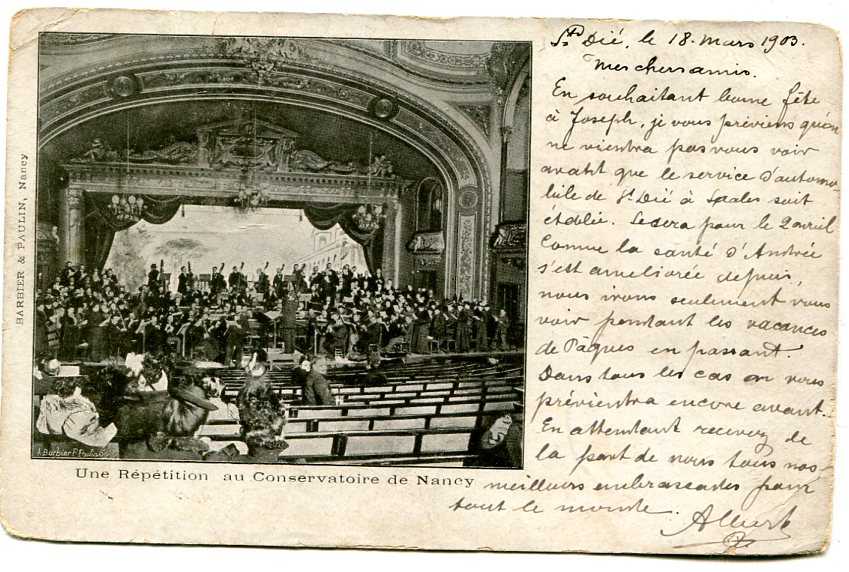 BARBIER & PAULIN, Nancy
St Dié, le 18. Mars 1903.
Mes chers amis.
En souhaitant bonne fête
à Joseph, je vous préviens qu'on
ne viendra pas vous voir
avant que le service d'automo-
bile de St Dié à Saales soit
établie. Ce sera pour le 2 avril
Comme la santé d'Andrée
s'est ameliorée depuis,
nous irons seulement vous
voir pendant les vacances
de Pâques en passant.
Dans tous les cas on vous
préviendra encore avant.
En attendant recevez de
la part de nous tous nos
meilleurs embrassades pour
tout le monde. Albert
Une Répétition au Conservatoire de Nancy